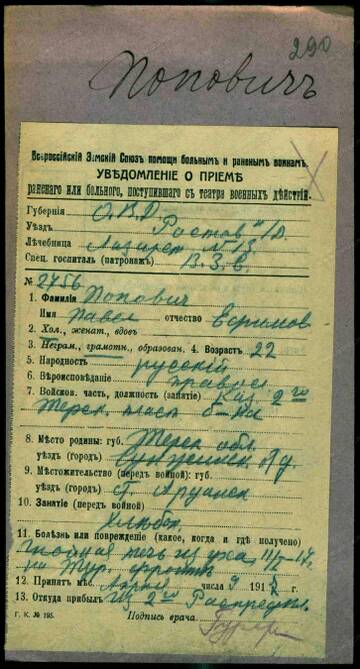 290
Поповичъ
Всероссійскій Земскій Союзъ помощи больнымъ и раненымъ воинамъ.
УВѢДОМЛЕНІЕ О ПРІЕМѢ
раненаго или больного, поступившаго съ театра военныхъ дѣйствій.
Губернія О.В.Д.
Уѣздъ Ростов н/Д.
Лѣчебница Лазарет № 13
Спец. госпиталь (патронажъ) В.З.С.
№ 2756
1. Фамилія Попович
Имя Павел отчество Ефимов
2. Хол., женат., вдовъ
3. Неграм., грамотн., образован. 4. Возрастъ 22
5. Народность русскій
6. Вѣроисповѣданіе правосл
7. Войсков. часть, должность (занятіе) Каз. 2го
Терск. пласт. б-на
8. Мѣсто родины: губ. Терск. обл.
уѣздъ (городъ)
9. Мѣстожительство (передъ войной): губ.
уѣздъ (городъ) ст.
10. Занятіе (передъ войной)
Хлѣбоп.
11. Болѣзнь или поврежденіе (какое, когда и гдѣ получено)
течь из уха
на Тур. фронтѣ
12. Принятъ мѣс. числа 9 191
13. Откуда прибылъ из 2го Распредѣл.
Г. К. № 295. Подпись врача